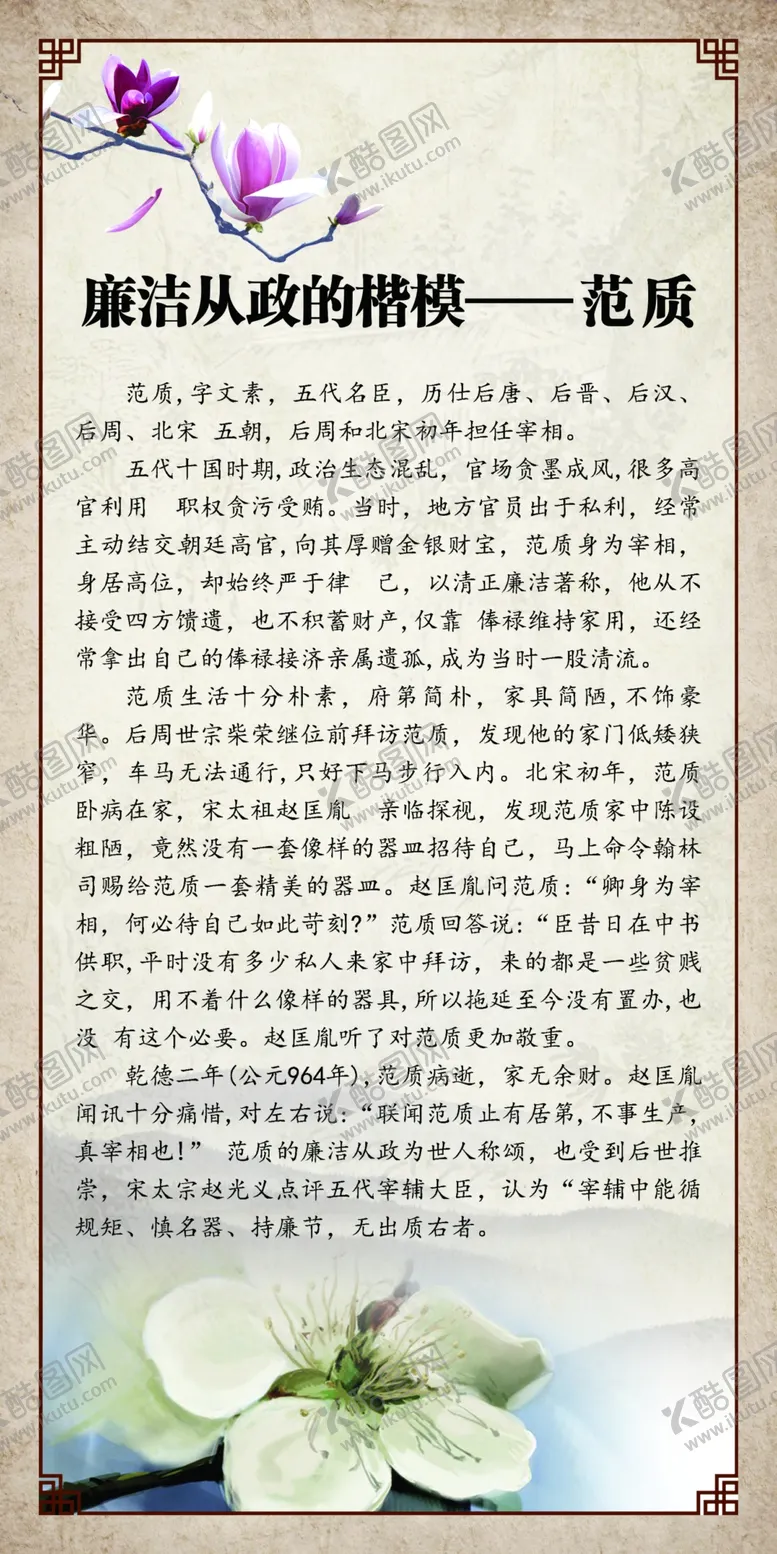 廉洁从政的楷模——范质
范质,字文素，五代名臣，历仕后唐、后晋、后汉、
后周、北宋 五朝，后周和北宋初年担任宰相。
五代十国时期,政治生态混乱，官场贪墨成风,很多高
官利用 职权贪污受贿。当时，地方官员出于私利，经常
主动结交朝廷高官,向其厚赠金银财宝，范质身为宰相，
身居高位，却始终严于律 己，以清正廉洁著称，他从不
接受四方馈遗，也不积蓄财产,仅靠 俸禄维持家用，还经
常拿出自己的俸禄接济亲属遗孤,成为当时一股清流。
范质生活十分朴素，府第简朴，家具简陋,不饰豪
华。后周世宗柴荣继位前拜访范质，发现他的家门低矮狭
窄，车马无法通行,只好下马步行入内。北宋初年，范质
卧病在家，宋太祖赵匡胤 亲临探视，发现范质家中陈设
粗陋，竟然没有一套像样的器皿招待自己，马上命令翰林
司赐给范质一套精美的器皿。赵匡胤问范质:“卿身为宰
相，何必待自己如此苛刻?”范质回答说:“臣昔日在中书
供职,平时没有多少私人来家中拜访，来的都是一些贫贱
之交，用不着什么像样的器具,所以拖延至今没有置办,也
没 有这个必要。赵匡胤听了对范质更加敬重。
乾德二年(公元964年),范质病逝，家无余财。赵匡胤
闻讯十分痛惜,对左右说:“联闻范质止有居第,不事生产,
真宰相也!” 范质的廉洁从政为世人称颂，也受到后世推
崇，宋太宗赵光义点评五代宰辅大臣，认为“宰辅中能循
规矩、慎名器、持廉节，无出质右者。
酷图网
www.ikutu.com